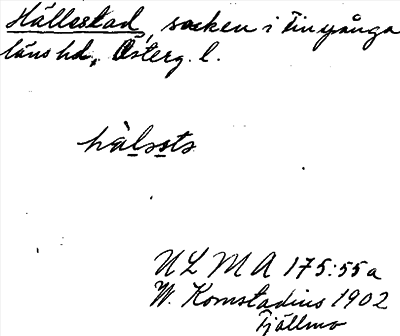 Hällestad, socken i Finspånga
läns hd, Österg. l.
hälssts
ULMA 175:55a
W. Komstadius 1902
Tjällmo